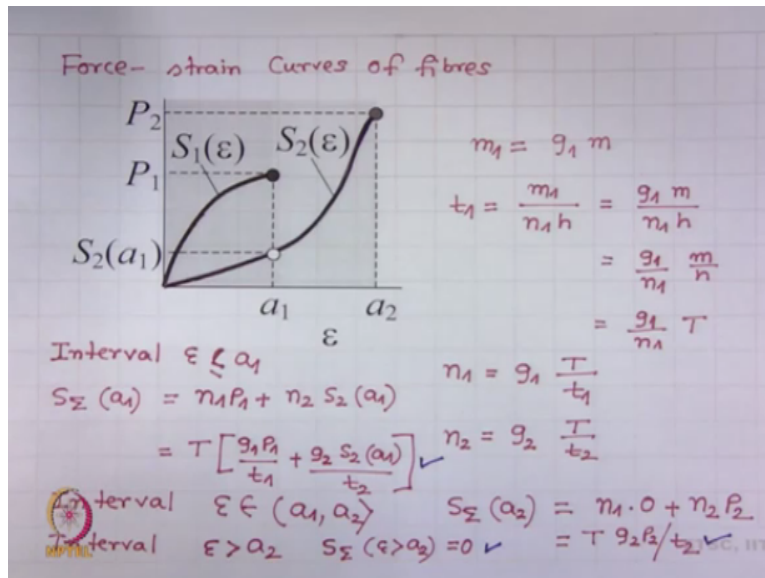 Force- strain Curves of fibres
P₂
S₁(ε) S₂(ε)
P₁
S₂(a₁)
a₁ a₂
ε
m₁ = g₁ m
t₁ = m₁/(n₁h) = g₁m/(n₁h)
= g₁/n₁ m/h
= g₁/n₁ T
Interval ε ≤ a₁
S_Σ (a₁) = n₁P₁ + n₂ S₂(a₁)
= T [g₁P₁/t₁ + g₂ S₂(a₁)/t₂] ✓
n₁ = g₁ T/t₁
n₂ = g₂ T/t₂
Interval ε ∈ (a₁, a₂⟩ S_Σ (a₂) = n₁·0 + n₂P₂
= T g₂P₂/t₂ ✓
Interval ε > a₂ S_Σ (ε>a₂) = 0 ✓
NPTEL